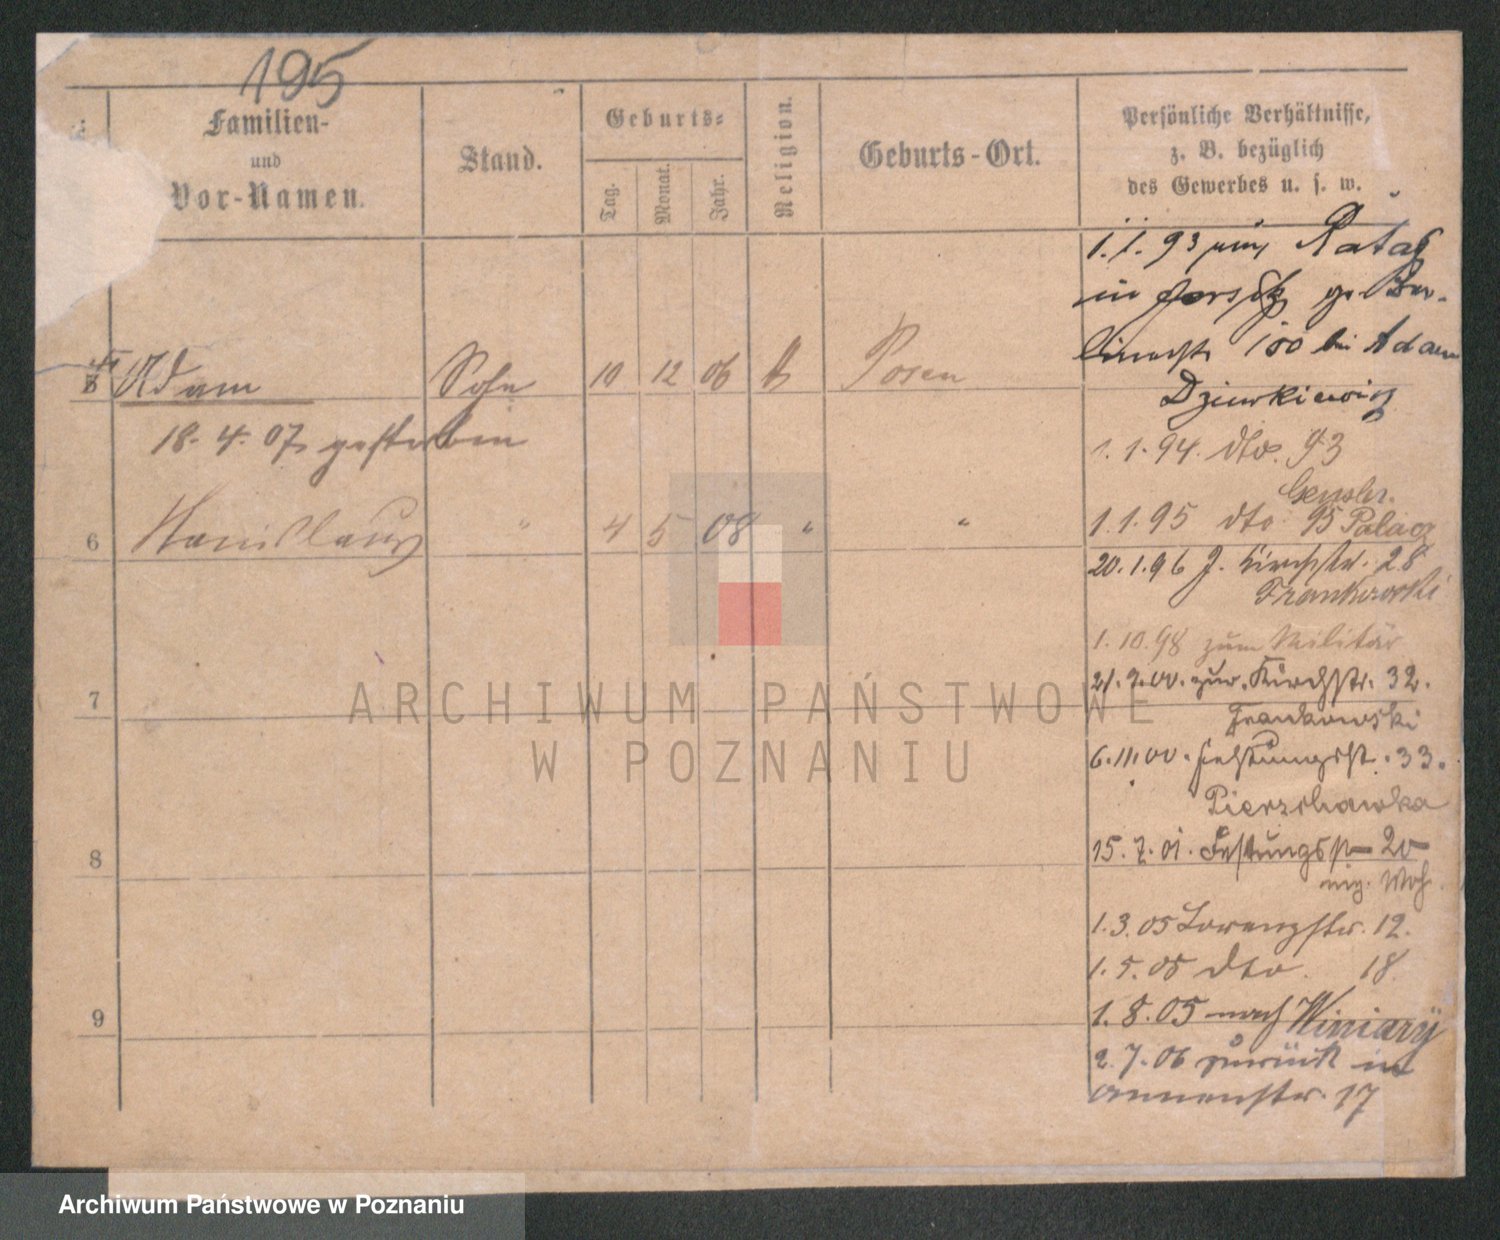 195
Familien-
und
Vor-Namen.
Stand.
Geburts-
Tag.
Monat.
Jahr.
Religion.
Geburts-Ort.
Persönliche Verhältnisse,
z. B. bezüglich
des Gewerbes u. s. w.
5 Adam Sohn 10 12 06 Posen
18. 4. 07 gestorben
6 Stanislaus " 4 5 08 " "
7
8
9
1. 1. 93
in Jersitz Ber-
linerstr 100 bei Adam
Dziurkiewicz
1. 1. 94. dto. 93
1. 1. 95 dto 95 Palacz
20. 1. 96 J. Kirchstr. 28
Frankowski
1. 10. 98 zum Militär
21. 9. 00. zur. Kirchstr. 32.
Frankowski
6. 11. 00. Festungsstr. 33.
Pierzchawka
15. 7. 01. Festungsstr 20
Woh.
1. 3. 05 Lorenzstr. 12.
1. 5. 05 dto. 18
1. 8. 05 nach Winiary
2. 7. 06 zurück in
Annenstr. 17
ARCHIWUM PAŃSTWOWE
W POZNANIU
Archiwum Państwowe w Poznaniu